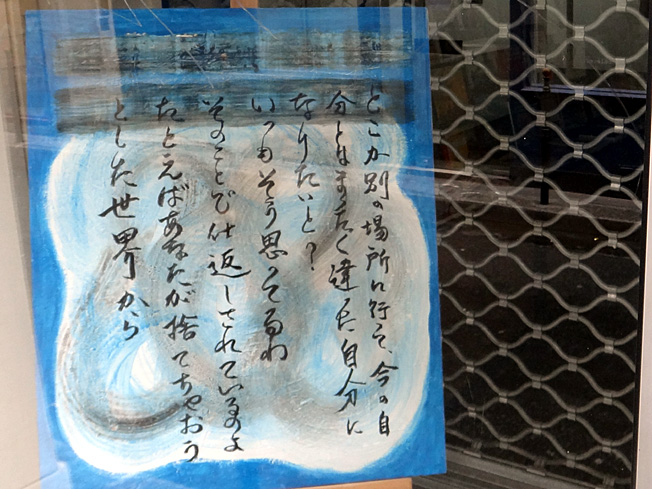 どこか別の場所に行って、今の自
分とはまったく違った自分に
なりたいと?
いつもそう思ってるわ
そのことで仕返しされているのよ
たとえばあなたが捨てちゃおう
とした世界から